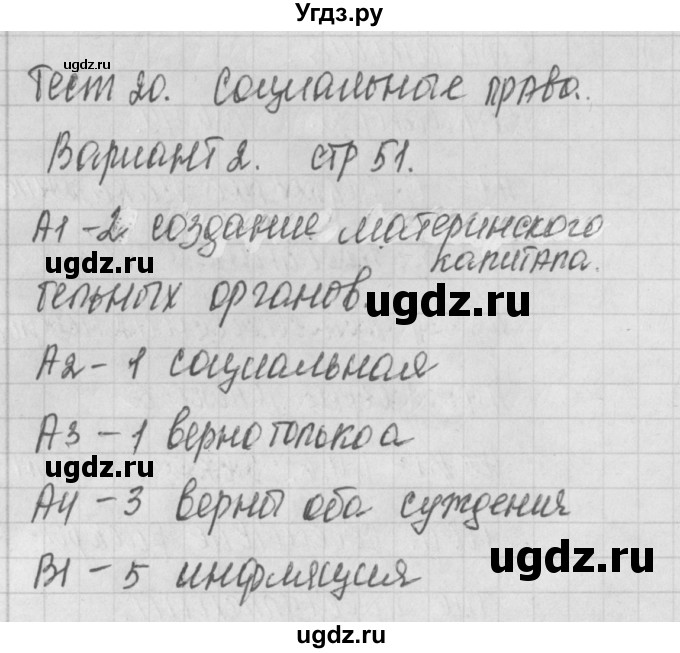 Угдз.ру
ugdz.ru
Тест 20. Социальные права.
Вариант 2. стр 51.
А1 - 2. создание материнского
капитала.
ugdz.ru
тельных органов.
ugdz.ru
А2 - 1 социальная
А3 - 1 верно только а
ugdz.ru
А4 - 3 верны оба суждения
ugdz.ru
В1 - 5 инфляция
ugdz.ru